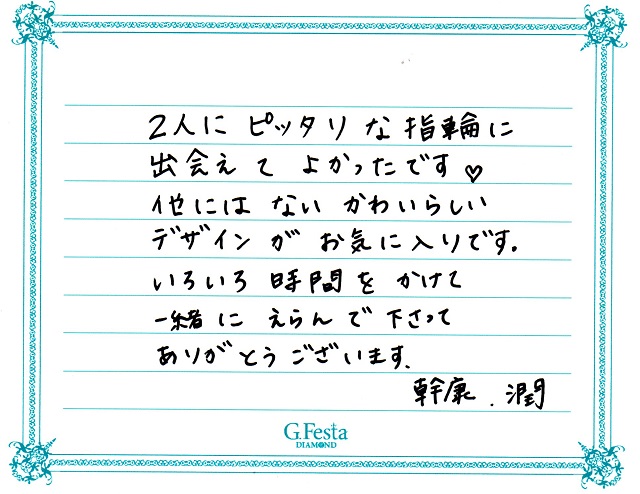 2人に ピッタリ な 指輪に
出会えて よかったです♡
他には ない かわいらしい
デザイン が お気に入りです。
いろいろ 時間を かけて
一緒に えらんで 下さって
ありがとうございます。
幹康、潤
G.Festa
DIAMOND